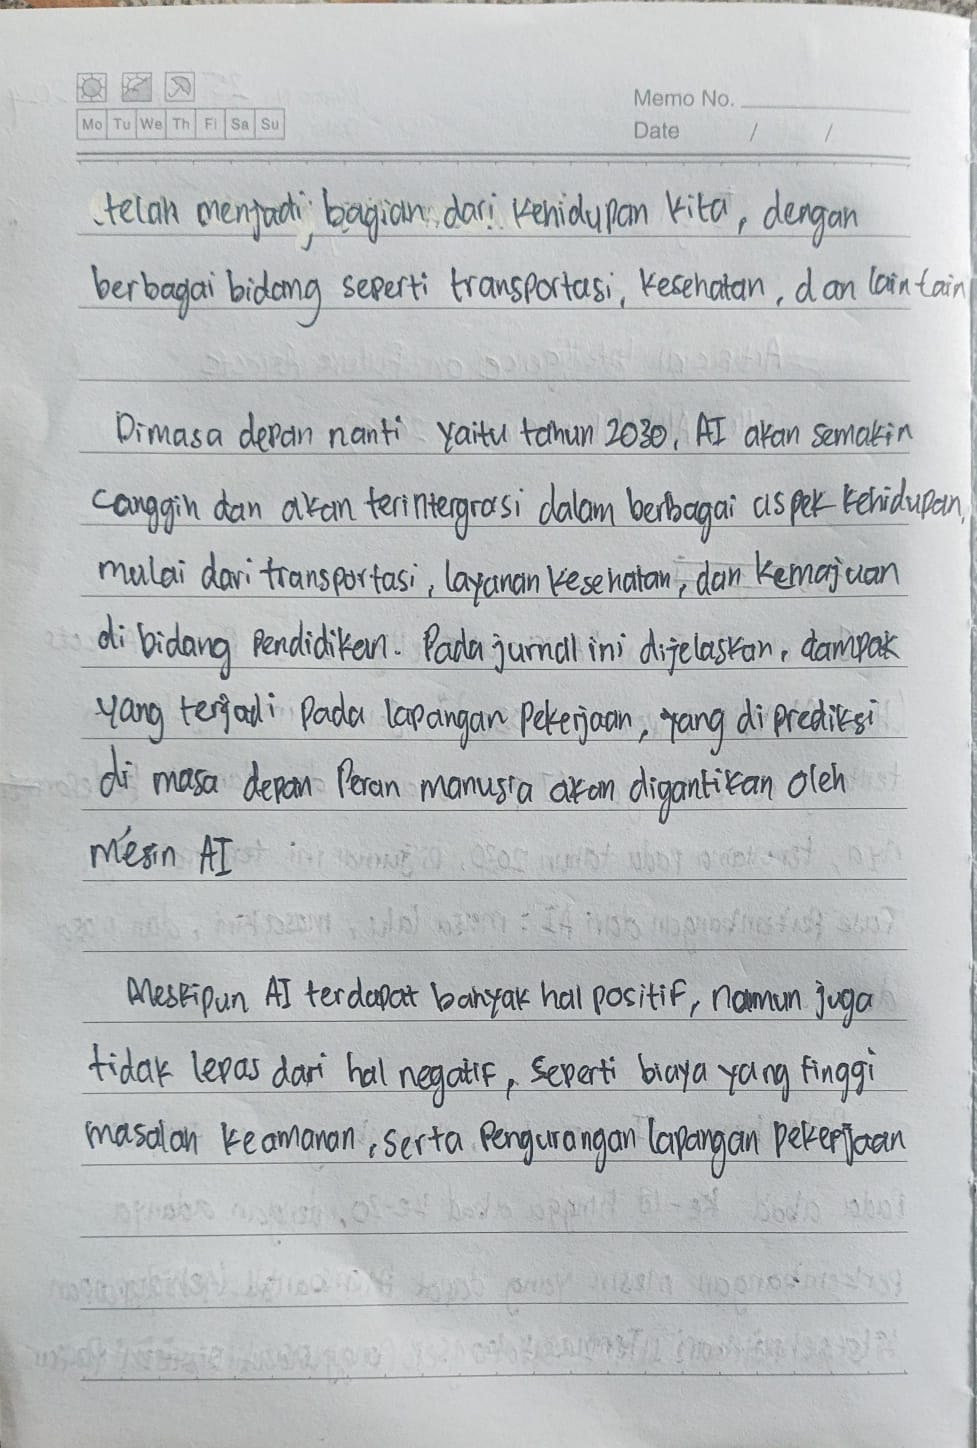 Memo No.
Mo Tu We Th Fi Sa Su
Date / /
telah menjadi bagian dari kehidupan kita, dengan
berbagai bidang seperti transportasi, kesehatan, dan lain lain
Dimasa depan nanti yaitu tahun 2030, AI akan semakin
canggih dan akan terintergrasi dalam berbagai aspek kehidupan,
mulai dari transportasi, layanan kesehatan, dan kemajuan
di bidang pendidikan. Pada jurnal ini dijelaskan, dampak
yang terjadi pada lapangan pekerjaan, yang di prediksi
di masa depan Peran manusia akan digantikan oleh
mesin AI
Meskipun AI terdapat banyak hal positif, namun juga
tidak lepas dari hal negatif, seperti biaya yang tinggi
masalah keamanan, serta Pengurangan lapangan pekerjaan